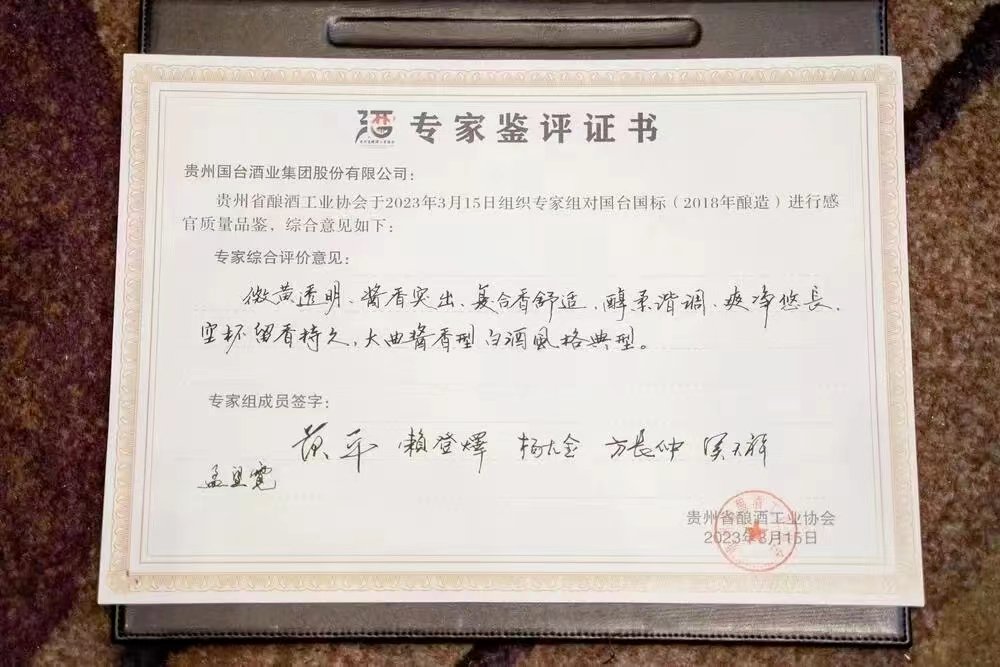 专家鉴评证书
贵州国台酒业集团股份有限公司：
贵州省酿酒工业协会于2023年3月15日组织专家组对国台国标（2018年酿造）进行感
官质量品鉴，综合意见如下：
专家综合评价意见：
微黄透明、酱香突出、复合香舒适、醇柔谐调、爽净悠长、
空杯留香持久，大曲酱香型白酒风格典型。
专家组成员签字：
范平 賴登燡 杨大金 方長仲
孟望霓
贵州省酿酒工业协会
2023年3月15日